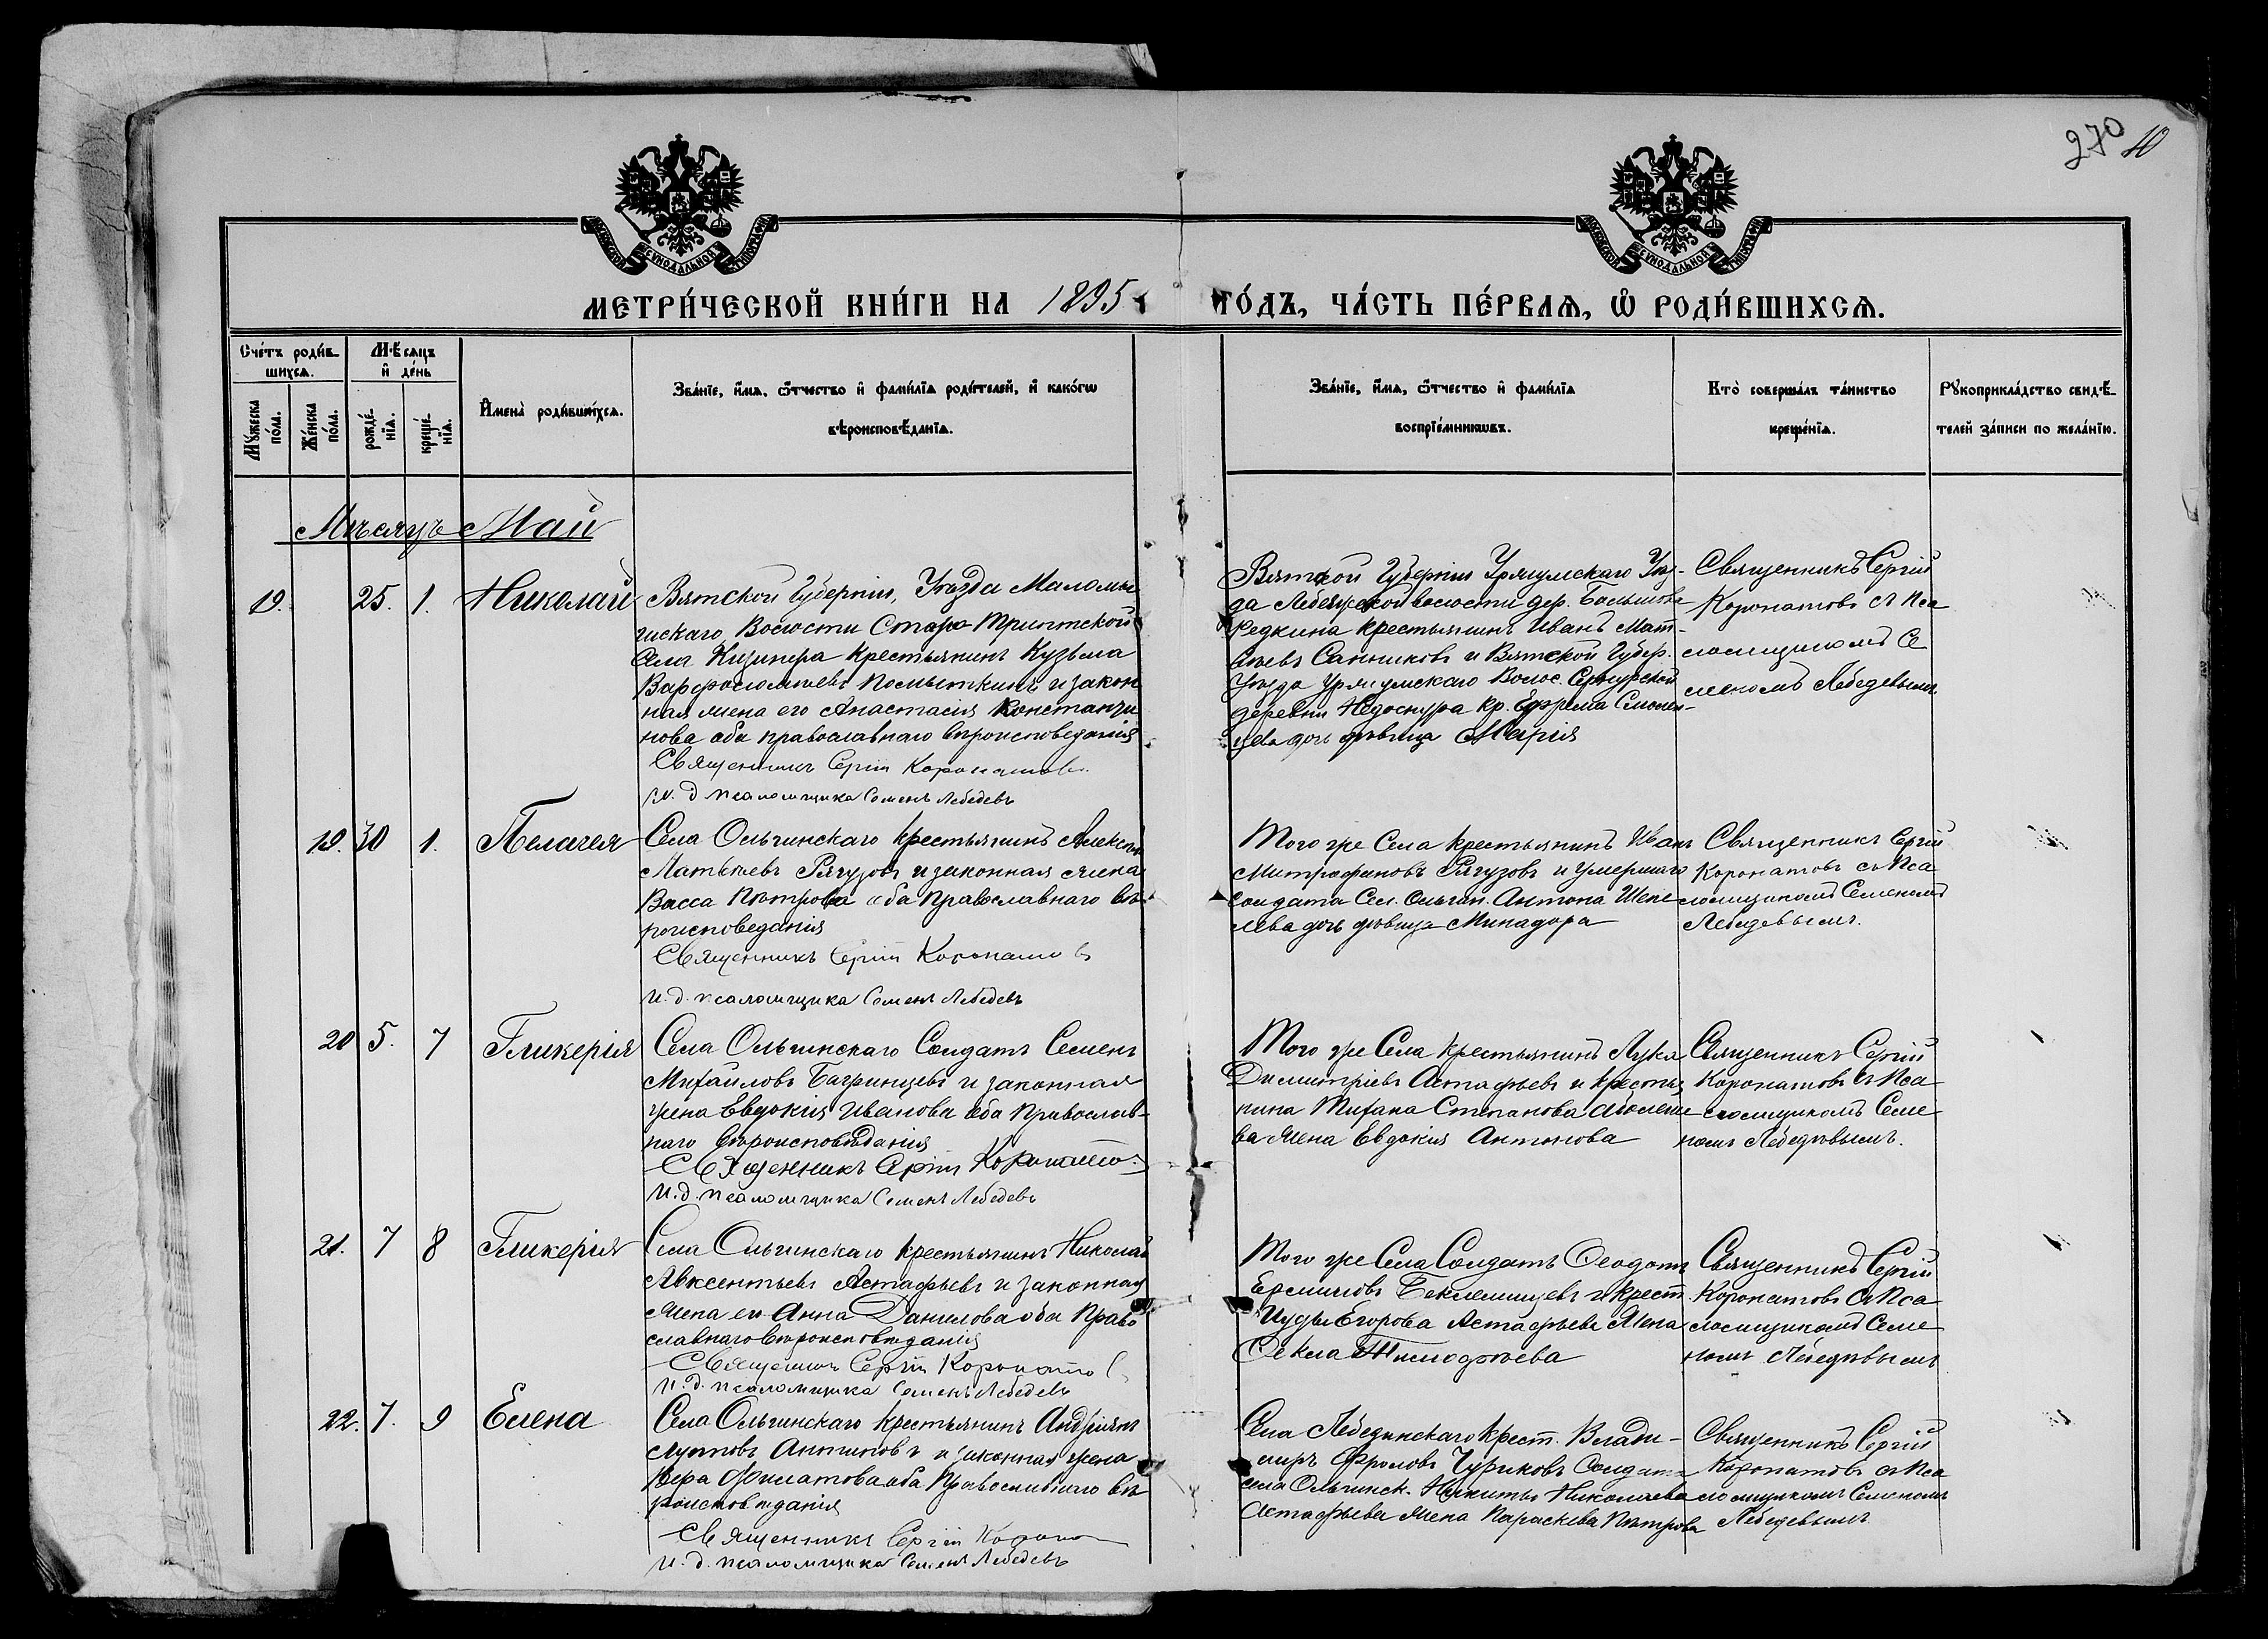 270 10
МЕТРИ́ЧЕСКОЙ КНИ́ГИ НА 1895 ГО́ДЪ, ЧА́СТЬ ПЕ́РВАѦ, Ѡ҆ РОДИ́ВШИХСѦ.
Сче́тъ роди́в-
шихсѧ.
Мѣ́сѧцъ
и҆ де́нь
Мꙋ́жеска по́ла.
Же́нска по́ла.
рожде́-
нїѧ.
креще́-
нїѧ.
И҆мена̀ роди́вшихсѧ.
Зва́нїе, и҆́мѧ, ѻ҆́тчество и҆ фами́лїѧ роди́телей, и҆ како́гѡ
вѣроисповѣ́данїѧ.
Зва́нїе, и҆́мѧ, ѻ҆́тчество и҆ фами́лїѧ
воспрїе́мникѡвъ.
Кто̀ соверша́лъ та́инство
креще́нїѧ.
Рꙋкоприкла́дство свидѣ́-
телей за́писи по жела́нїю.
Мѣсяцъ Май
19. 25. 1. Николай
Вятской Губерніи, Уѣзда Малмы
жскаго, Волости Старо-Трыкской
Села Кизнера крестьянинъ Кузьма
Варфоломѣевъ Помыткинъ и закон
ная жена его Анастасія Константи
нова оба православнаго вѣроисповеданія
Священникъ Сергій Коронатовъ
и. д. псаломщика Семенъ Лебедевъ
Вятской Губерніи Уржумскаго Уѣз-
да Лебяжской волости дер.
Редкина крестьянинъ Иванъ Мат-
вѣевъ Санниковъ и Вятской Губер.
Уѣзда Уржумскаго Волос. Сернурской
деревни кр. Ефрема
дочь дѣвица Марія
Священникъ Сергій
Коронатовъ съ Пса
ломщикомъ Се
меномъ Лебедевымъ
19. 30 1. Пелагея
Села Ольгинскаго крестьянинъ Алексѣй
Матвѣевъ Рягузовъ и законная жена
Васса Петрова оба Православнаго вѣ
роисповеданія
Священникъ Сергій Коронатовъ
и. д. псаломщика Семенъ Лебедевъ
Того же Села крестьянинъ Иванъ
Митрофановъ Рягузовъ и умершаго
солдата Сел. Ольгин. Антона Шепе
лева дочь дѣвица Минадора
Священникъ Сергій
Коронатовъ съ Пса
ломщикомъ Семеномъ
Лебедевымъ.
20 5. 7 Гликерія
Села Ольгинскаго Солдатъ Семенъ
Михайловъ Багринцевъ и законная
жена Евдокія Иванова оба Православ-
наго вѣроисповѣданія
Священникъ Сергій Коронатовъ
И. д. псаломщика Семенъ Лебедевъ
Того же Села крестьянинъ Лука
Димитріевъ Астафьевъ и крестья
нина Тихана Степанова
ва жена Евдокія Антонова
Священникъ Сергій
Коронатовъ съ Пса
ломщикомъ Семе
номъ Лебедѣвымъ.
21. 7 8 Гликерія
Села Ольгинскаго крестьянинъ Николай
Авксентьевъ Астафьевъ и законная
жена его Анна Данилова оба Право
славнаго вѣроисповѣданія
Священникъ Сергій Коронатов
И. д. псаломщика Семенъ Лебедевъ
Того же Села Солдатъ Ѳеодотъ
Ермиловъ Беклемищевъ и крест.
Іуды Егорова Астафьева жена
Ѳекла Тимофѣева
Священникъ Сергій
Коронатовъ съ Пса
ломщикомъ Семе
номъ Лебедѣвымъ
22. 7. 9 Елена
Села Ольгинскаго крестьянинъ Андріянъ
Антиповъ и законная жена
Вера Филатова оба Православнаго вѣ
роисповѣданія
Священникъ Сергій Короно
и. д. псаломщика Семенъ Лебедевъ
Села Лебединскаго крест. Влади-
миръ Фроловъ Чуриковъ Солдата
села Ольгинск. Никиты Николаева
Астафьева жена Параскева Петрова
Священникъ Сергій
Коронатовъ съ Пса
ломщикомъ Семеномъ
Лебедевымъ